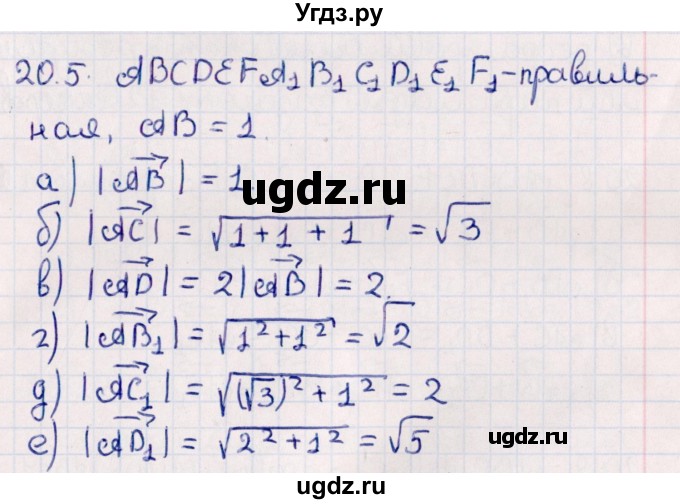 Угдз.ру
20.5. ABCDEFA₁B₁C₁D₁E₁F₁-правиль-
ная, AB = 1.
а) |AB⃗| = 1
ugdz.ru
б) |AC⃗| = √(1+1+1) = √3
в) |AD⃗| = 2|AB⃗| = 2.
г) |AB₁⃗| = √(1²+1²) = √2
д) |AC₁⃗| = √((√3)²+1²) = 2
е) |AD₁⃗| = √(2²+1²) = √5
ugdz.ru
ugdz.ru